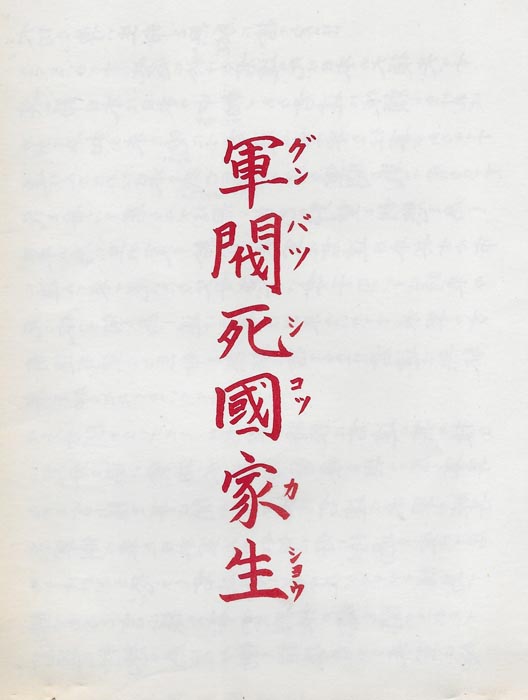 軍閥死國家生
グンバツシコツカショウ